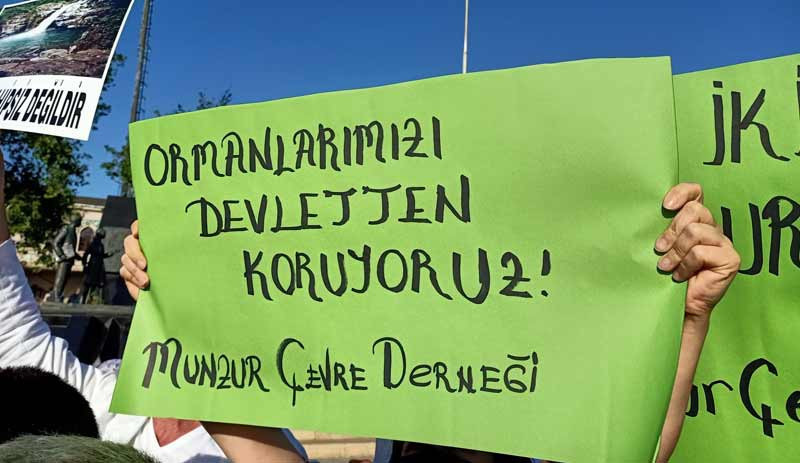 DEĞİLDİR
ORMANLARIMIZI
DEVLETTEN
KORUYORUZ!
MUNZUR ÇEVRE DERNEĞİ
İK